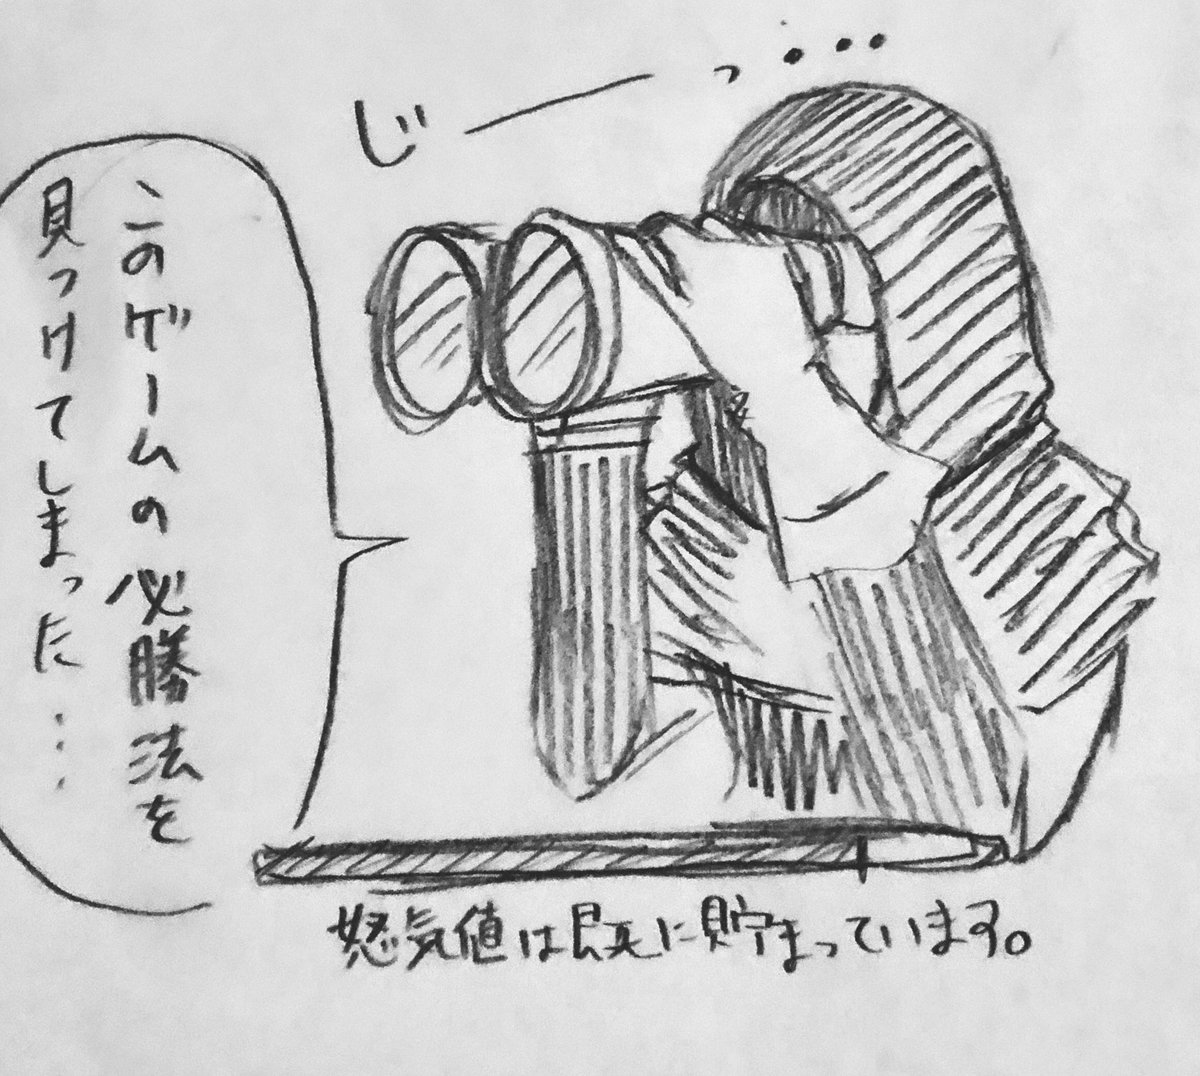 じーっ・・・
このゲームの必勝法を
見つけてしまった…
怒気値は既に貯まっています。